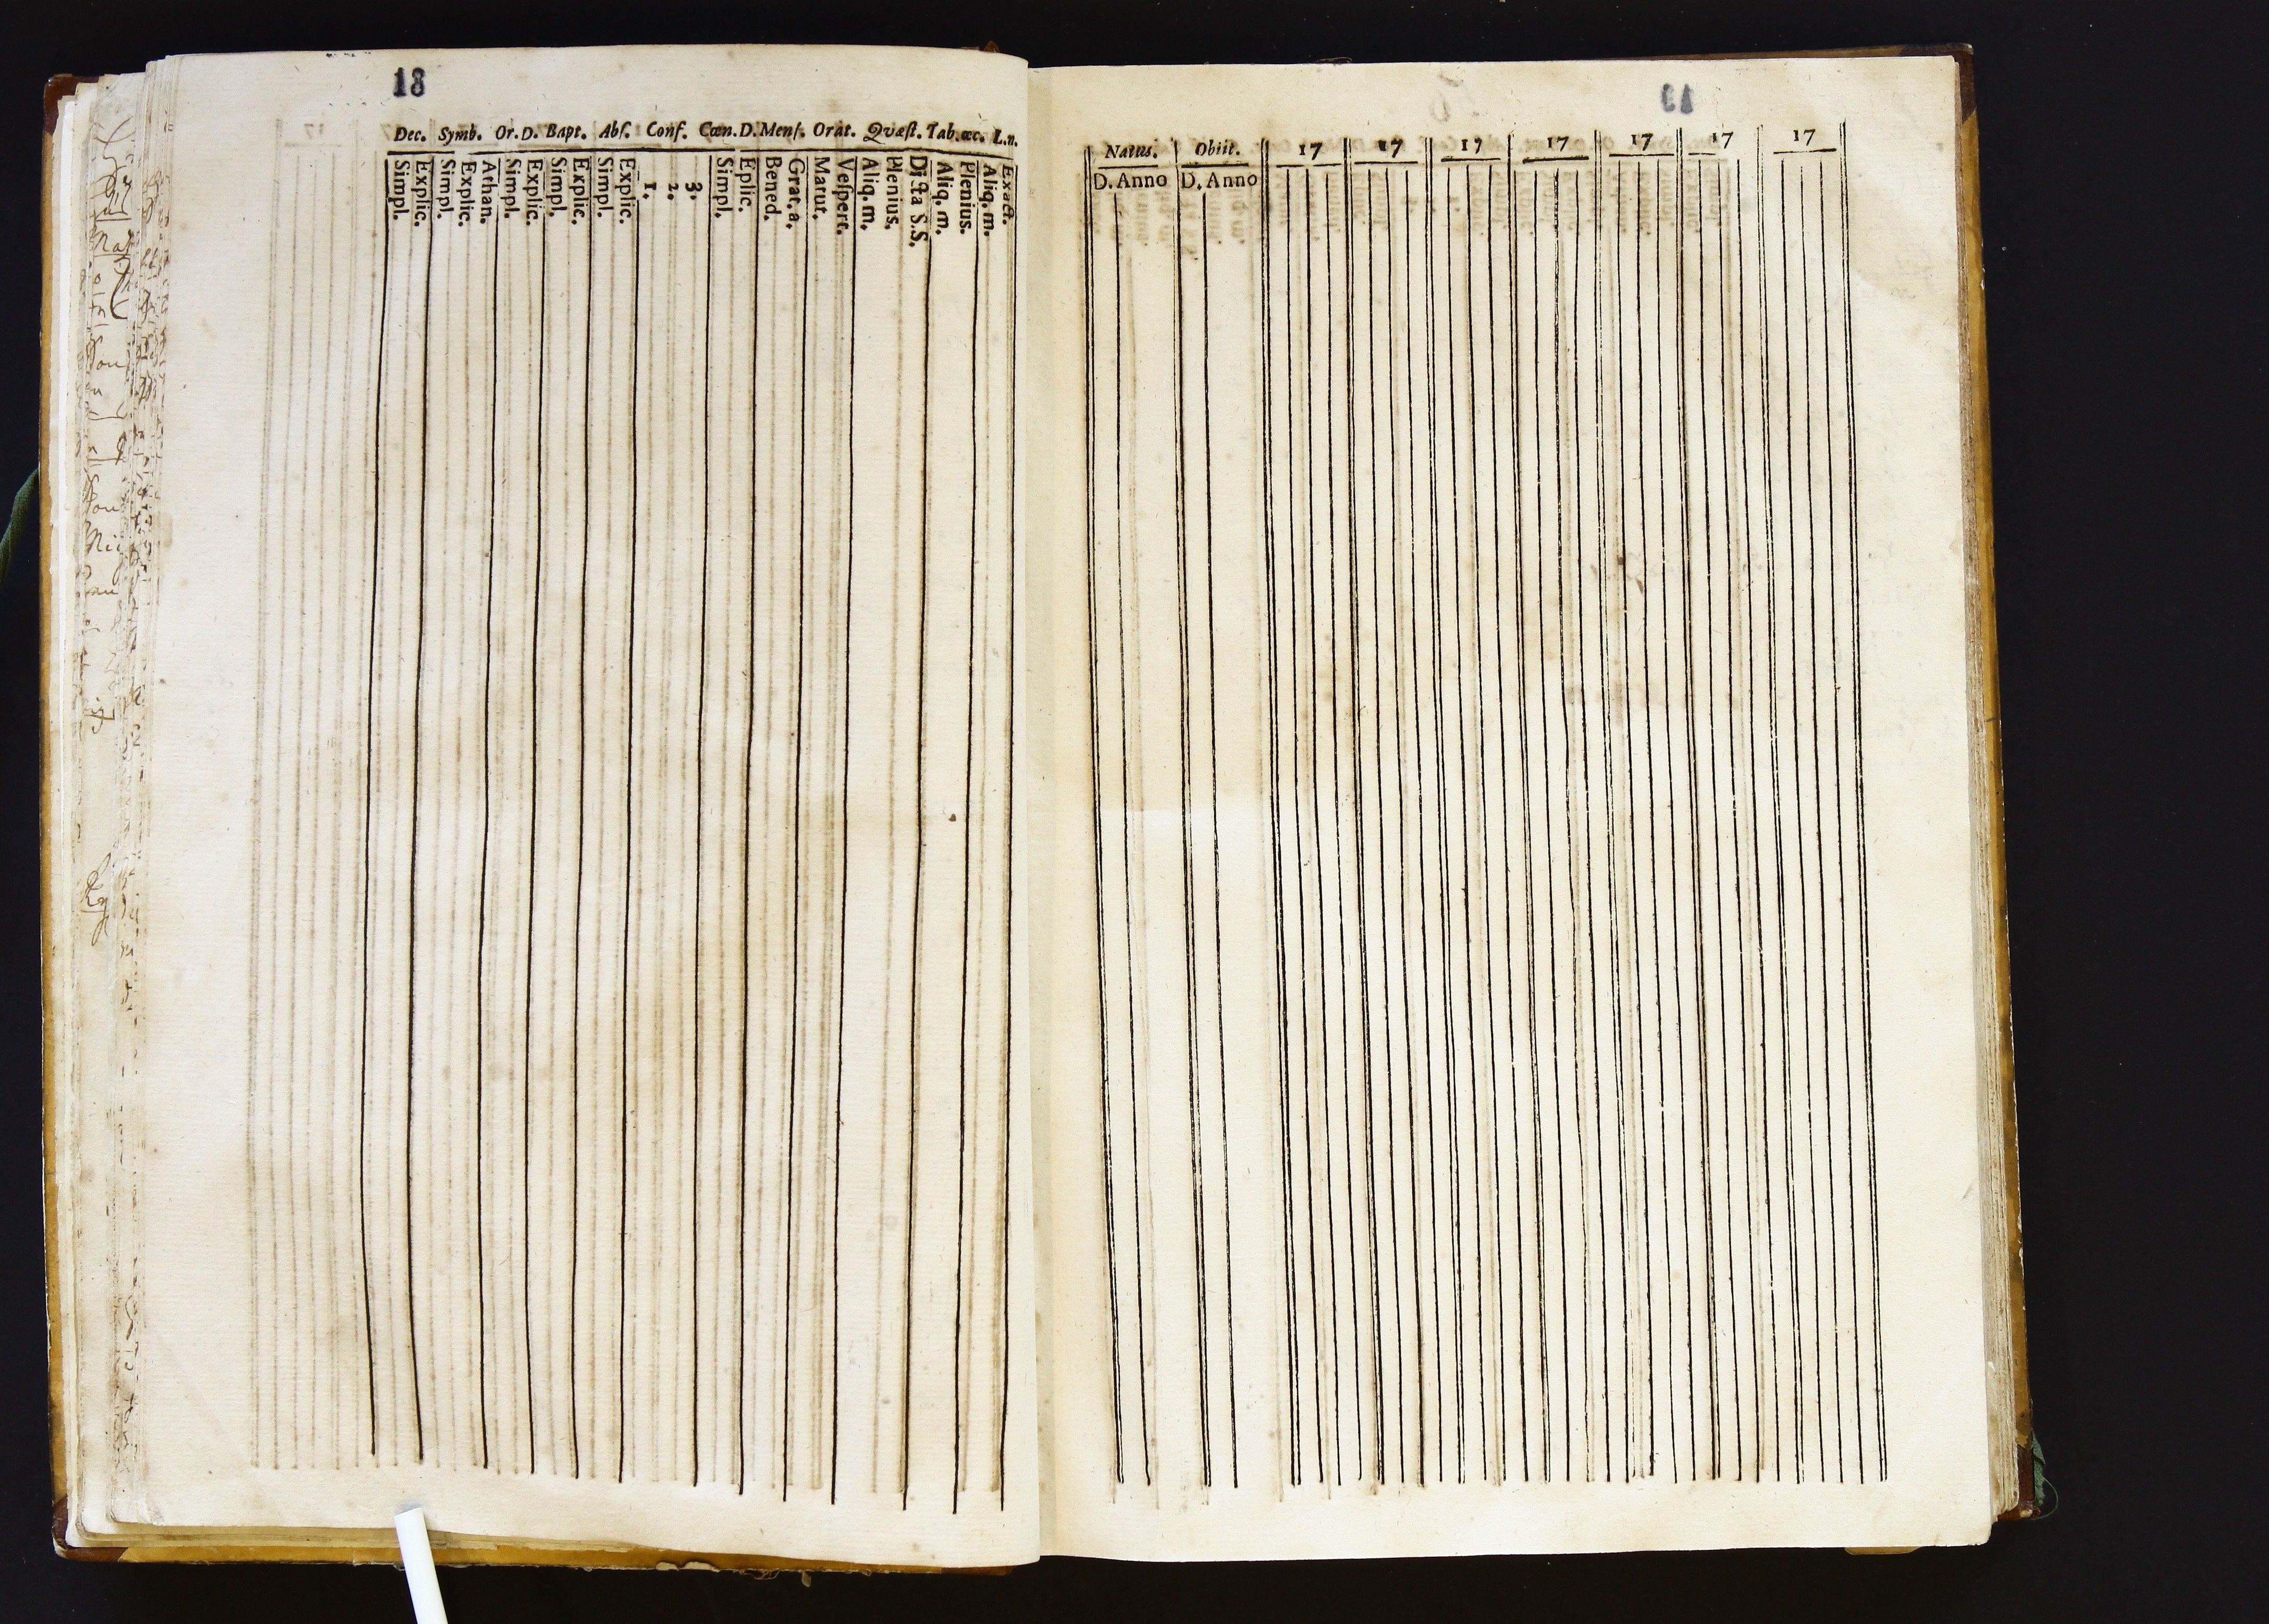 18
Dec. Symb. Or. D. Bapt. Abſ. Conf. Cœn. D. Menſ. Orat. Qvæſt. Tab. œc. L.n.
Simpl.
Explic.
Simpl.
Explic.
Athan.
Simpl.
Explic.
Simpl.
Explic.
Simpl.
Explic.
1.
2.
3.
Simpl.
Eplic.
Bened.
Grat. a.
Matut.
Veſpert.
Aliq. m.
Plenius.
Dicta S.S.
Aliq. m.
Plenius.
Aliq. m.
Exact.
19
Natus. Obiit. 17 17 17 17 17 17 17
D. Anno D. Anno